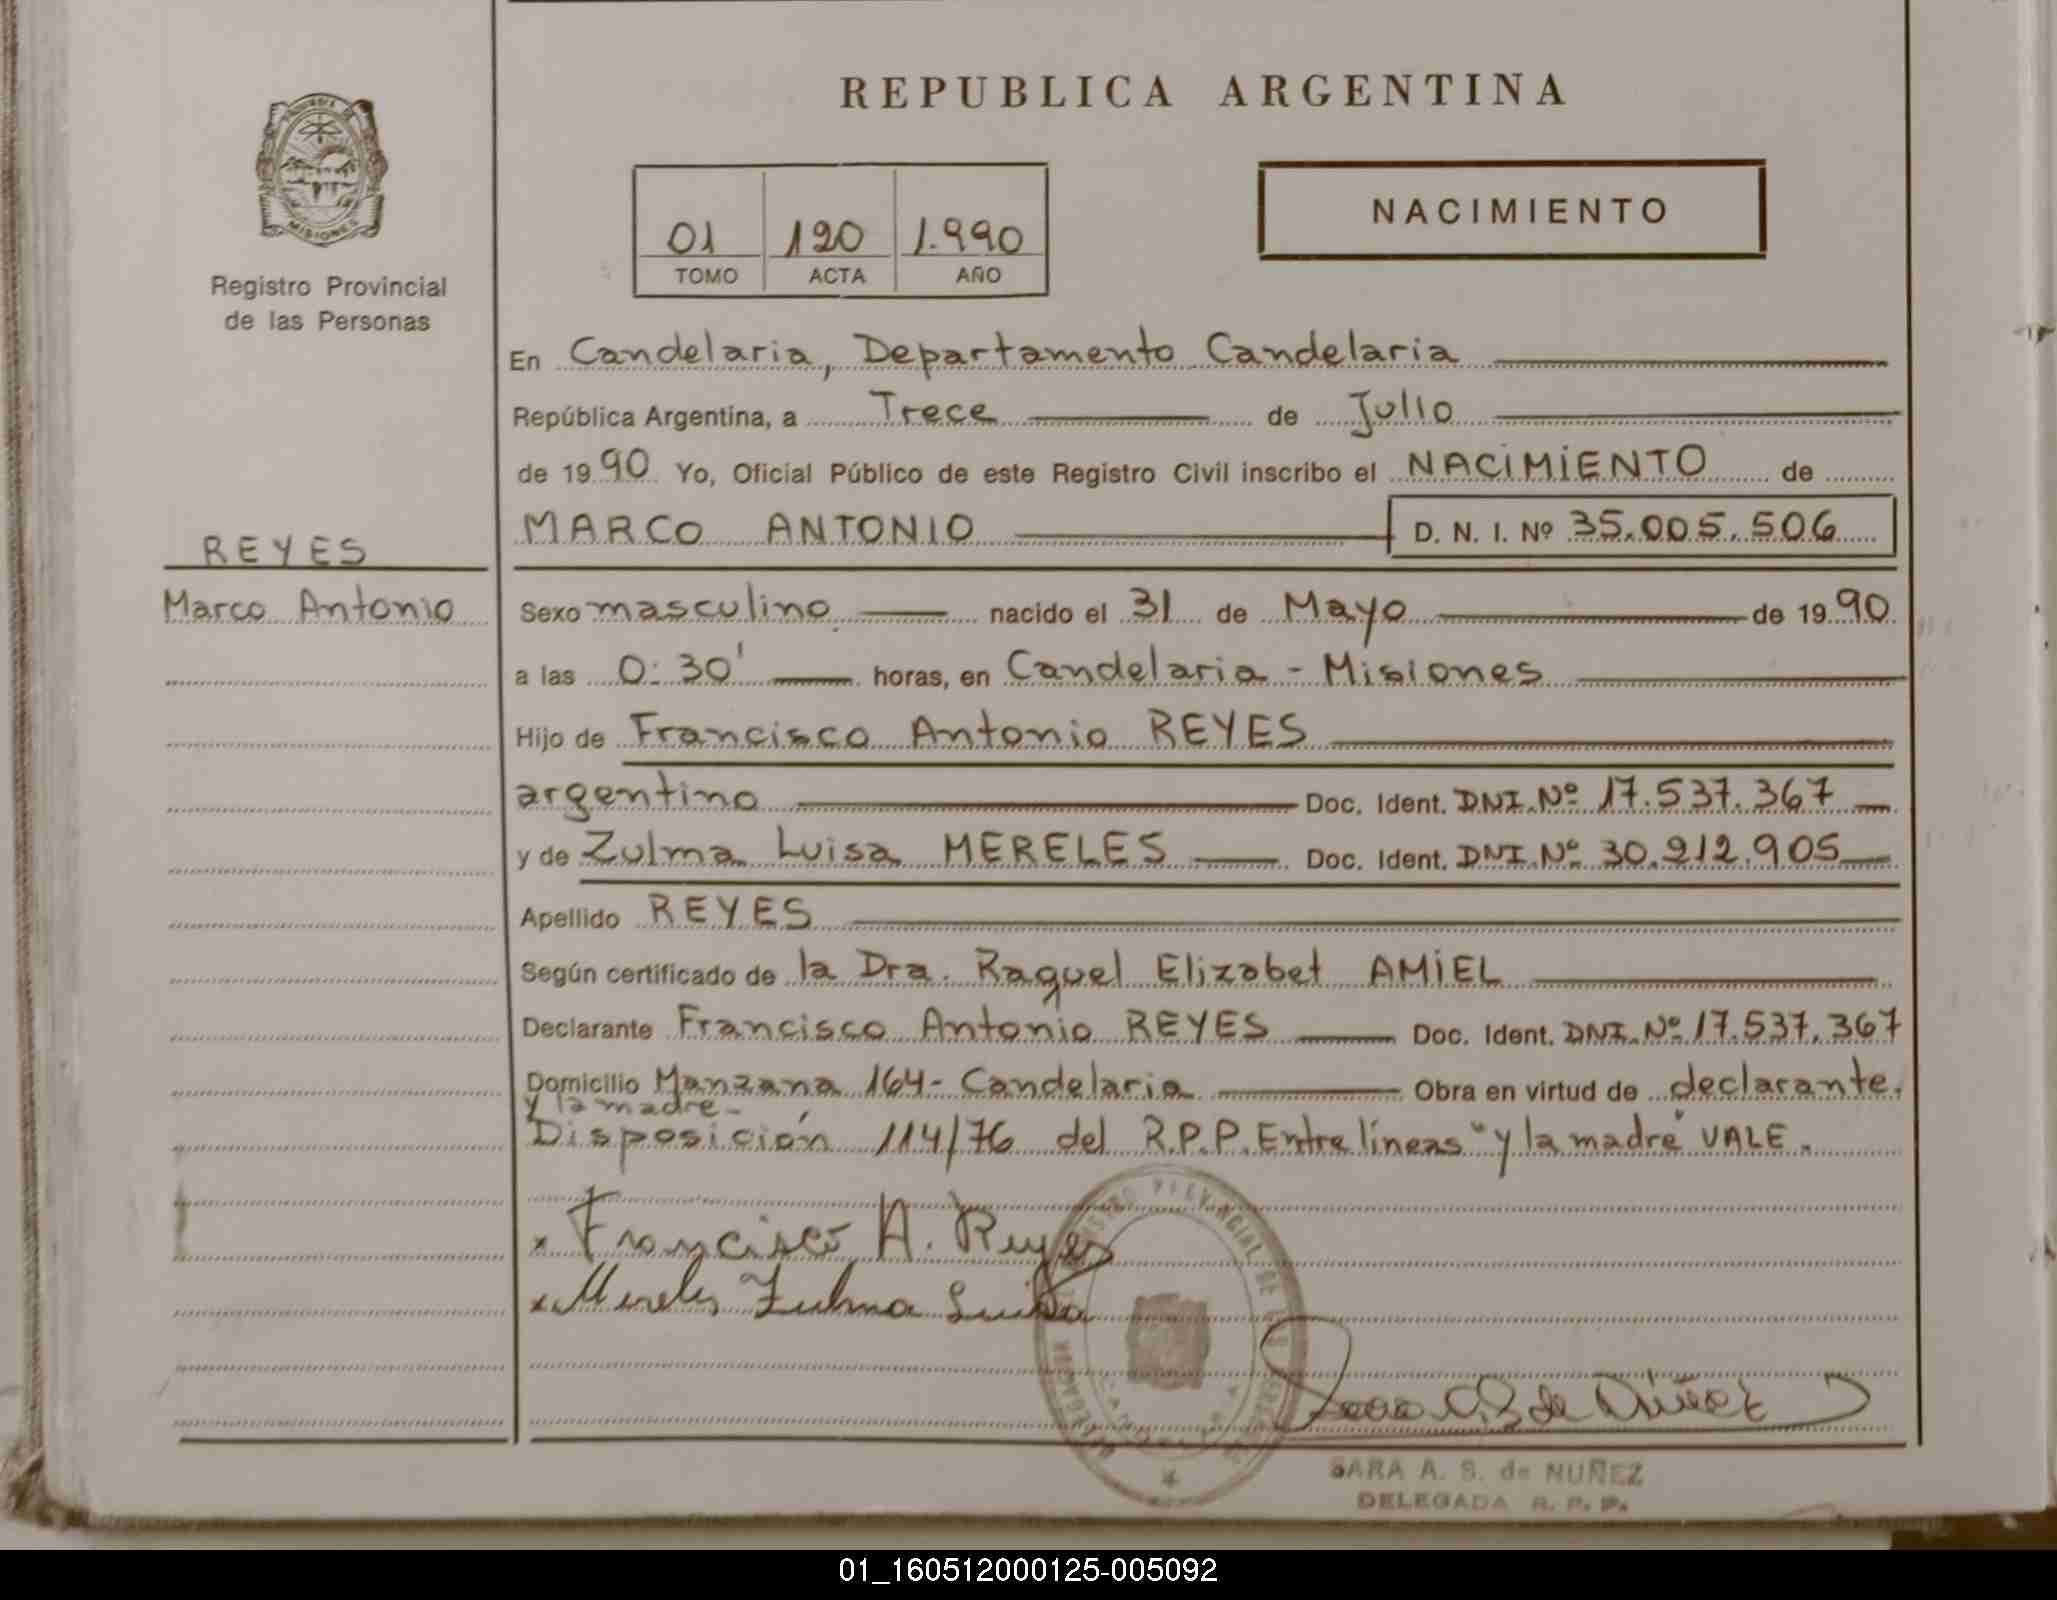 REPUBLICA ARGENTINA
MISIONES
Registro Provincial
de las Personas
01 120 1.990
TOMO ACTA AÑO
NACIMIENTO
En Candelaria, Departamento Candelaria
República Argentina, a Trece de Julio
de 1990 Yo, Oficial Público de este Registro Civil inscribo el NACIMIENTO de
MARCO ANTONIO D. N. I. Nº 35.005.506
REYES
Marco Antonio
Sexo masculino nacido el 31 de Mayo de 1990
a las 0:30' horas, en Candelaria - Misiones
Hijo de Francisco Antonio REYES
argentino Doc. Ident. DNI.Nº 17.537.367
y de Zulma Luisa MERELES Doc. Ident. DNI.Nº 30.212.905
Apellido REYES
Según certificado de la Dra. Raquel Elizabet AMIEL
Declarante Francisco Antonio REYES Doc. Ident. DNI.Nº 17.537.367
Domicilio Manzana 164- Candelaria Obra en virtud de declarante.
y la madre-
Disposición 114/76 del R.P.P. Entre líneas "y la madre" VALE.
x Francisco A. Reyes
x Mereles Zulma Luisa
SARA A. S. de NUÑEZ
DELEGADA R. P. P.
01_160512000125-005092